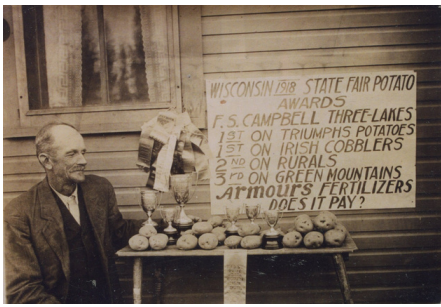 WISCONSIN 1918 STATE FAIR POTATO
AWARDS
F. S. CAMPBELL THREE-LAKES
1ST ON TRIUMPHS POTATOES
1ST ON IRISH COBBLERS
2ND ON RURALS
3RD ON GREEN MOUNTAINS
Armours FERTILIZERS
DOES IT PAY?